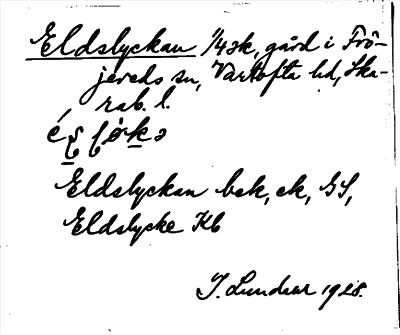 Eldslyckan 1/4 sk, gård i Frö-
jereds sn, Vartofta hd, Ska-
rab. l.
Eldslyckan bek, ek, GS,
Eldslycke Kb
J. Lundear 1928.